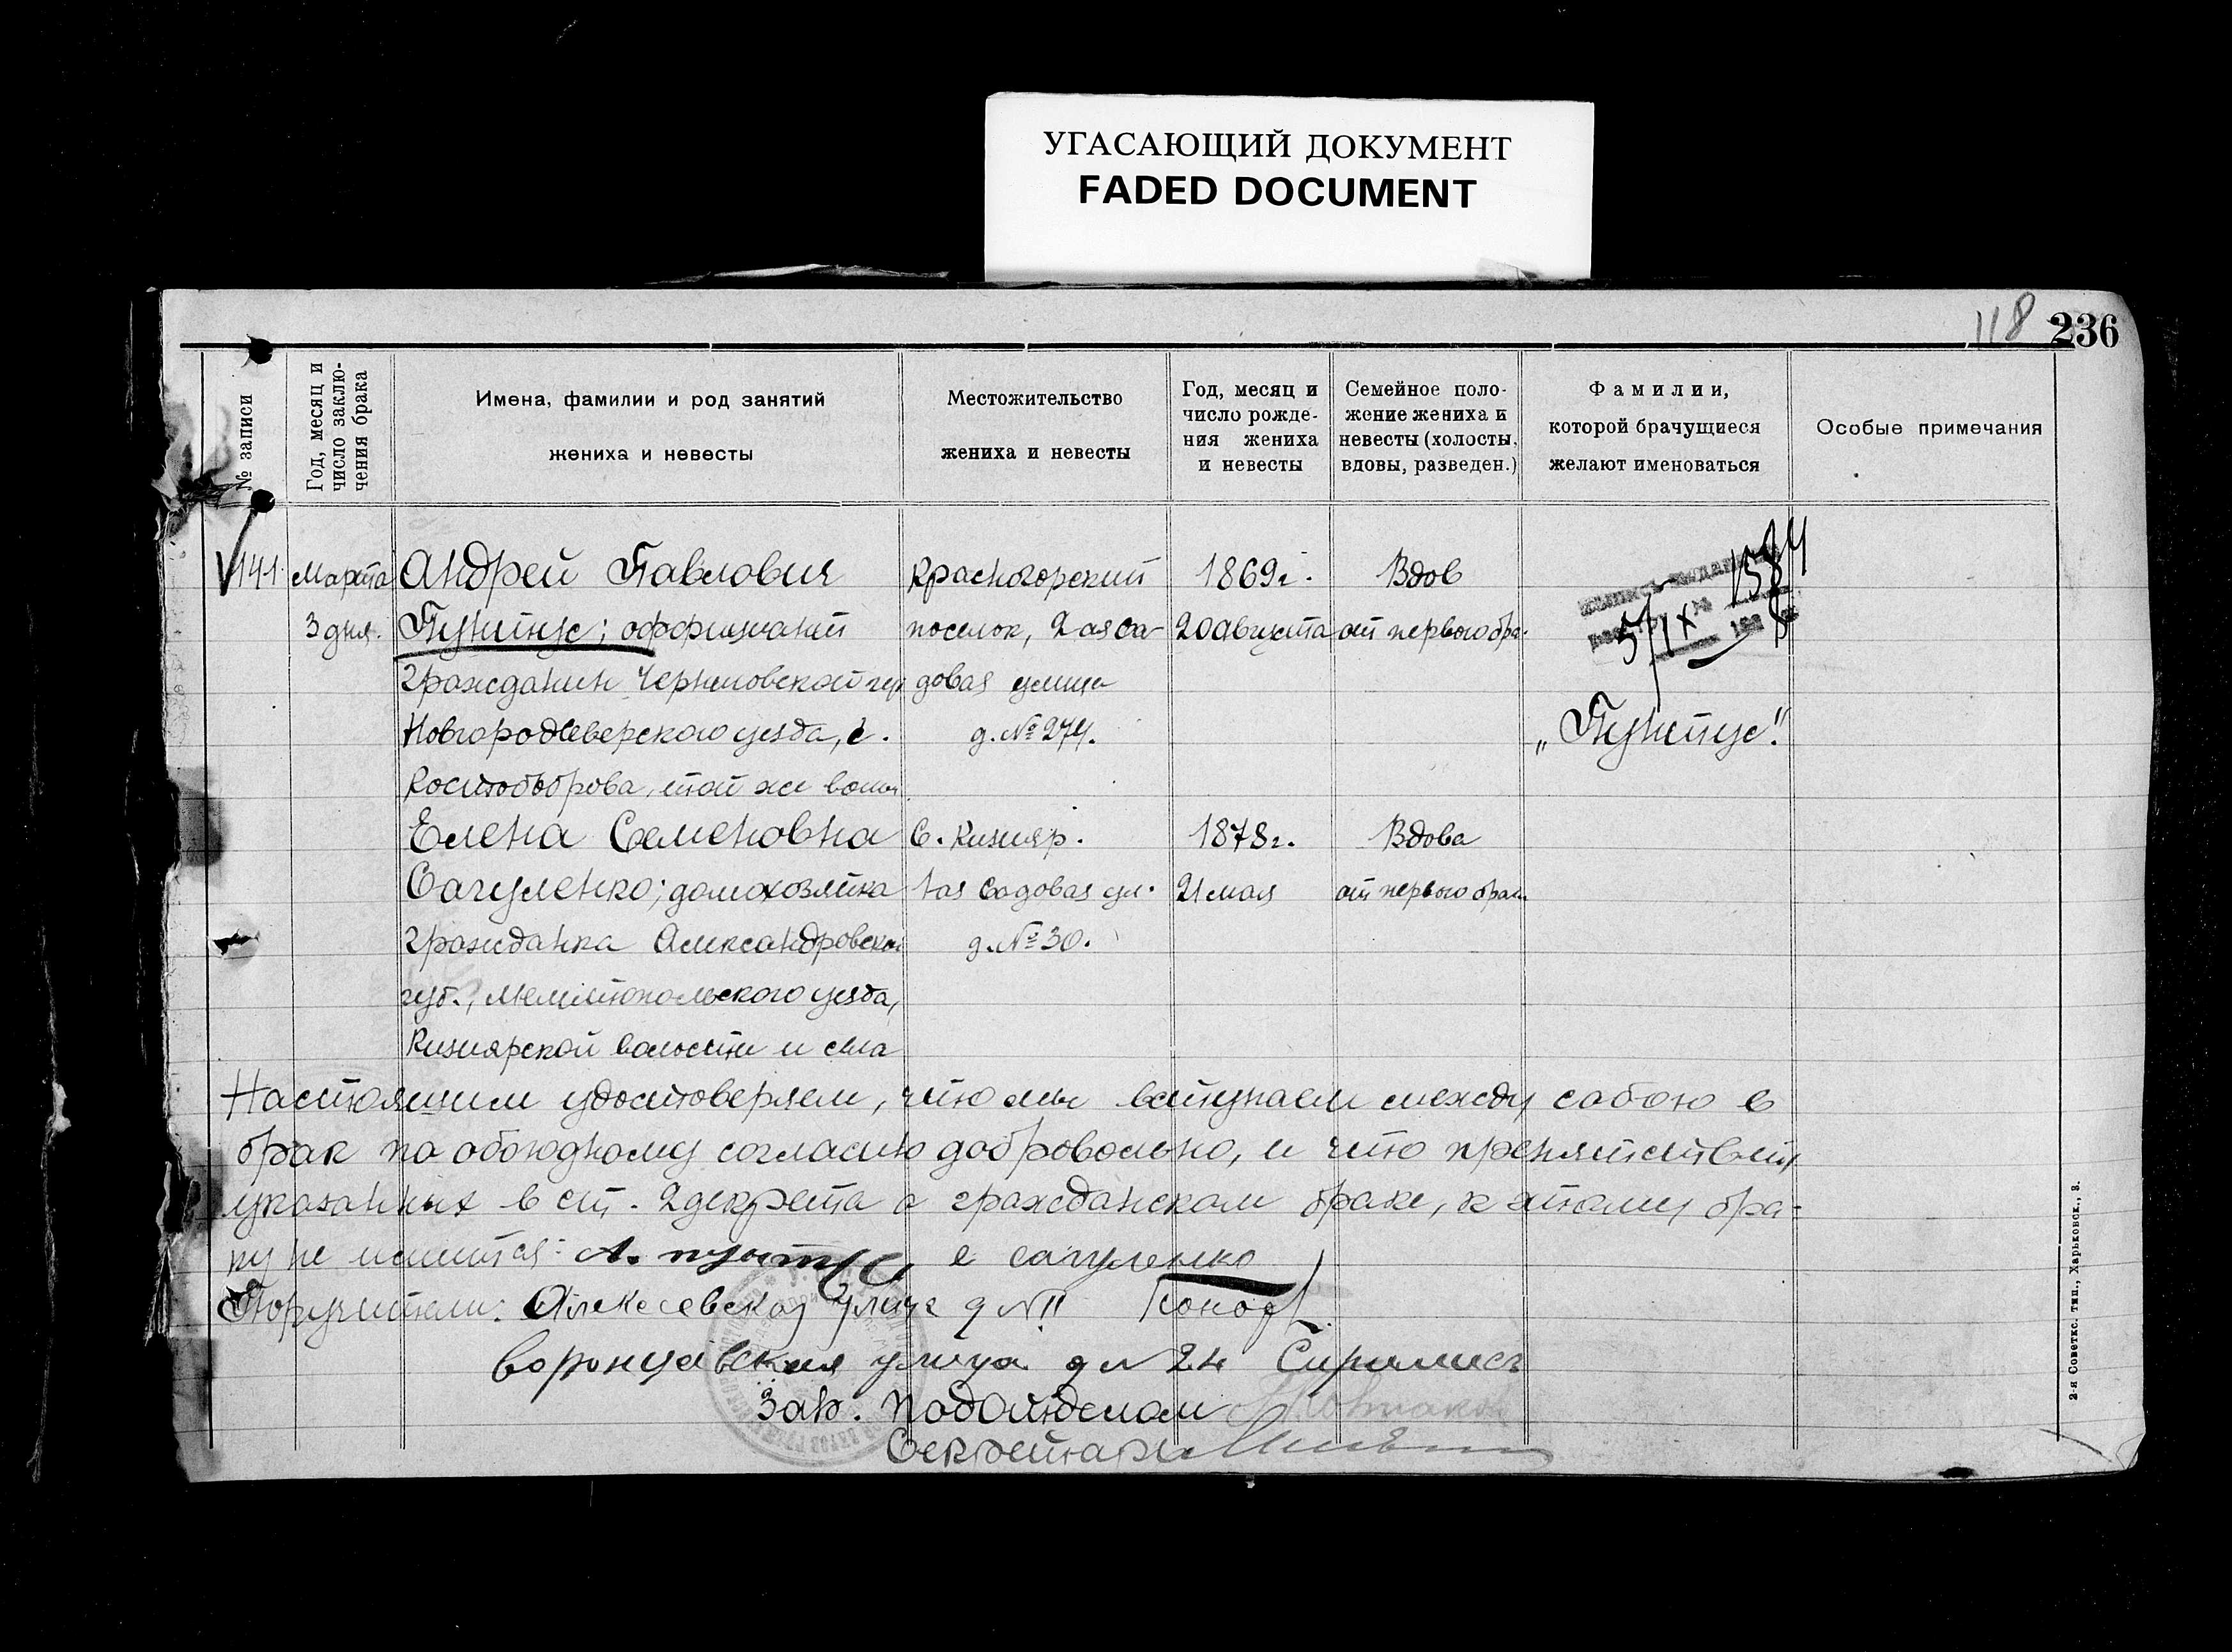 УГАСАЮЩИЙ ДОКУМЕНТ
FADED DOCUMENT
118 236
№ записи
Год, месяц и число заклю-чения брака
Имена, фамилии и род занятий
жениха и невесты
Местожительство
жениха и невесты
Год, месяц и
число рожде-
ния жениха
и невесты
Семейное поло-
жение жениха и
невесты (холосты,
вдовы, разведен.)
Фамилии,
которой брачущиеся
желают именоваться
Особые примечания
141 Марта Андрей Павлович Красногорский 1869г. Вдов
3 дня. Пунтус; официант поселок, 2ая Са- 20 августа от первого бра-
гражданин Черниговской гу довая улица
Новгородсеверского уезда, с. д. № 274. „Пунтус"
Костобоброва, той же волы
Елена Семеновна С. Кизияр. 1878г. Вдова
Сагуленко; домохозяйка 1ая Садовая ул. 21 мая от первого брак.
гражданка Александровской д. № 30.
губ., Мелитопольского уезда,
Кизиярской волости и села
Настоящим удостоверяем, что мы вступаем между собою в
брак по обоюдному согласию добровольно, и что препятствий
указанных в ст. 2 декрета о гражданском браке, к этому бра-
ку не имеится: А. пунтус е сагуленко
Поручители: Алексеевская улица д № 11
воронцовская улица д № 24
Зав. Подотделом
Секретарь
2-я Советск. тип., Харьковск., 3.